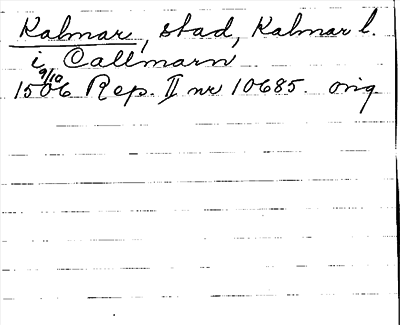 Kalmar, stad, Kalmar l.
i Callmarn
9/10
1506 Rep. II nr 10685. orig